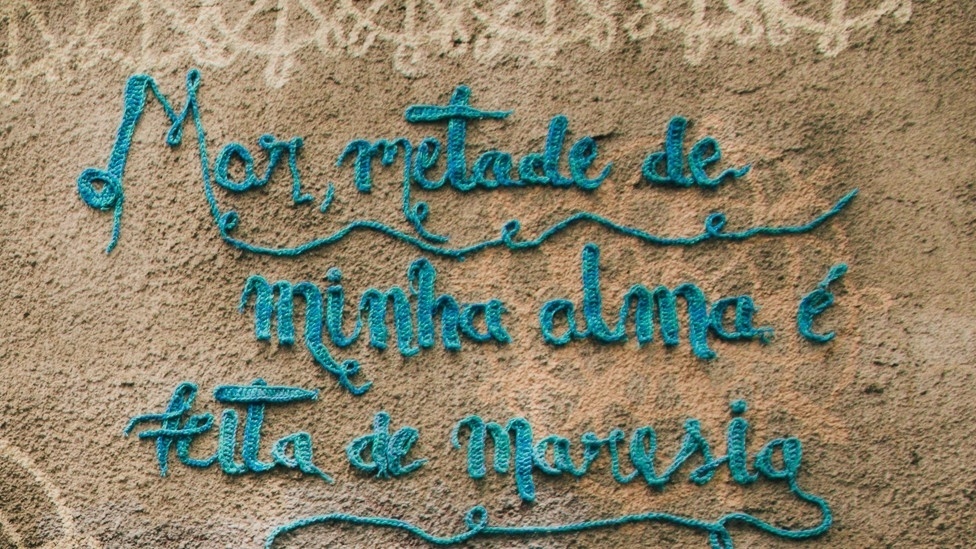 Mar, metade de
minha alma é
feita de maresia